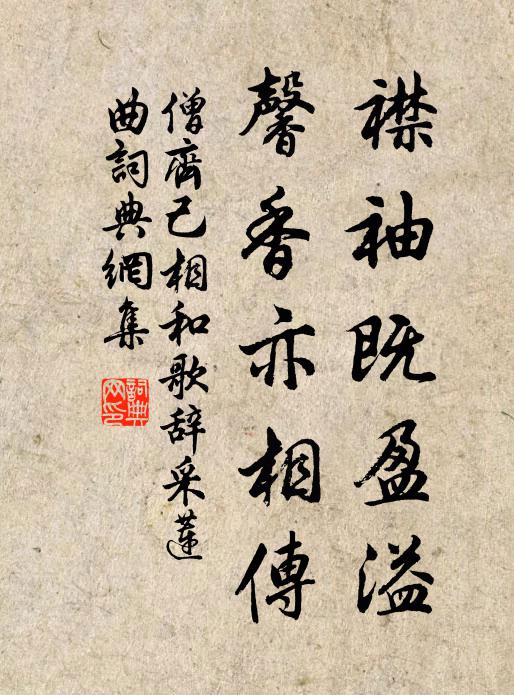 襟袖既盈溢
馨香亦相傳
僧齊己相和歌辞采蓮
曲詞典網集
詞典
网印